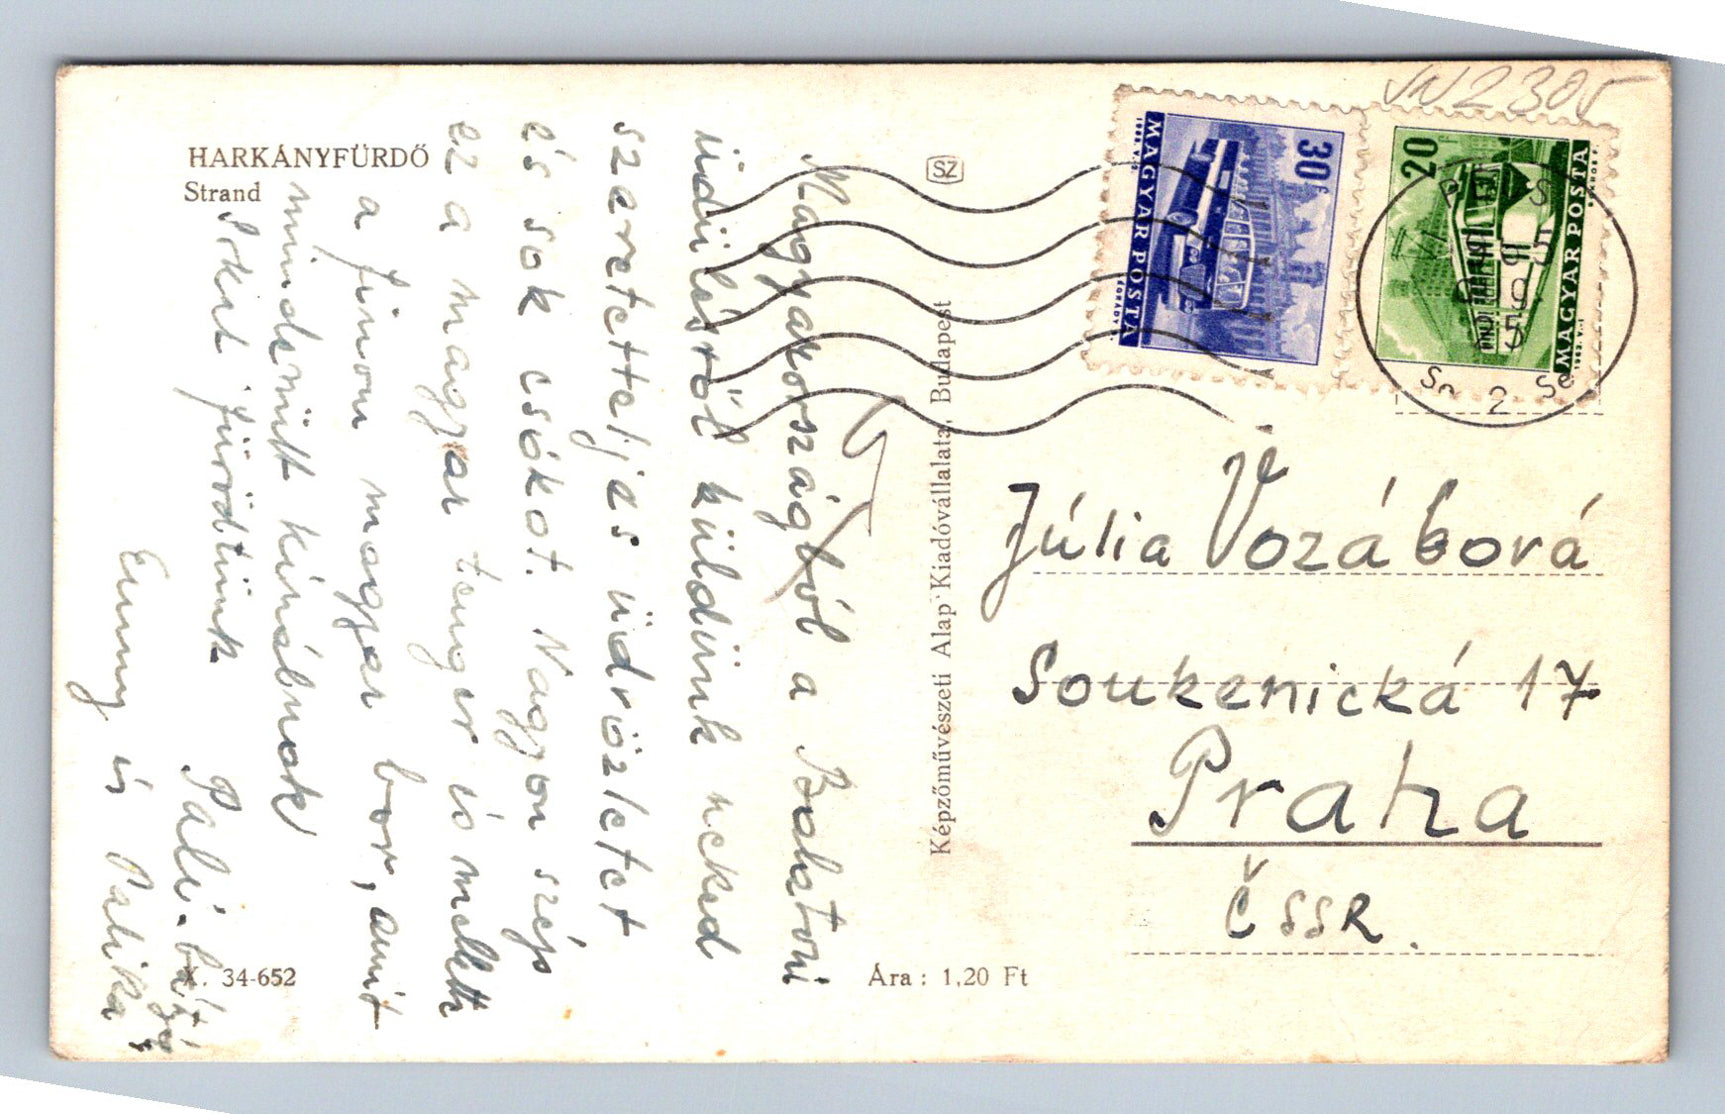 HARKÁNYFÜRDŐ
Strand
Magyarországból a Balatoni
üdülésről küldünk neked
szeretetteljes üdvözletet
és sok csókot. Nagyon szép
ez a magyar tenger is mellette
a finom magyar bor, amit
mindenütt kínálnak
Sokat fürödtünk
Pali-bátyó
Emmy és Palika
SZ
Képzőművészeti Alap Kiadóvállalata, Budapest
X. 34-652
Ára: 1,20 Ft
30f
MAGYAR POSTA
20f
MAGYAR POSTA
2305
2
Júlia Vozábová
Soukenická 17
Praha
ČSSR.